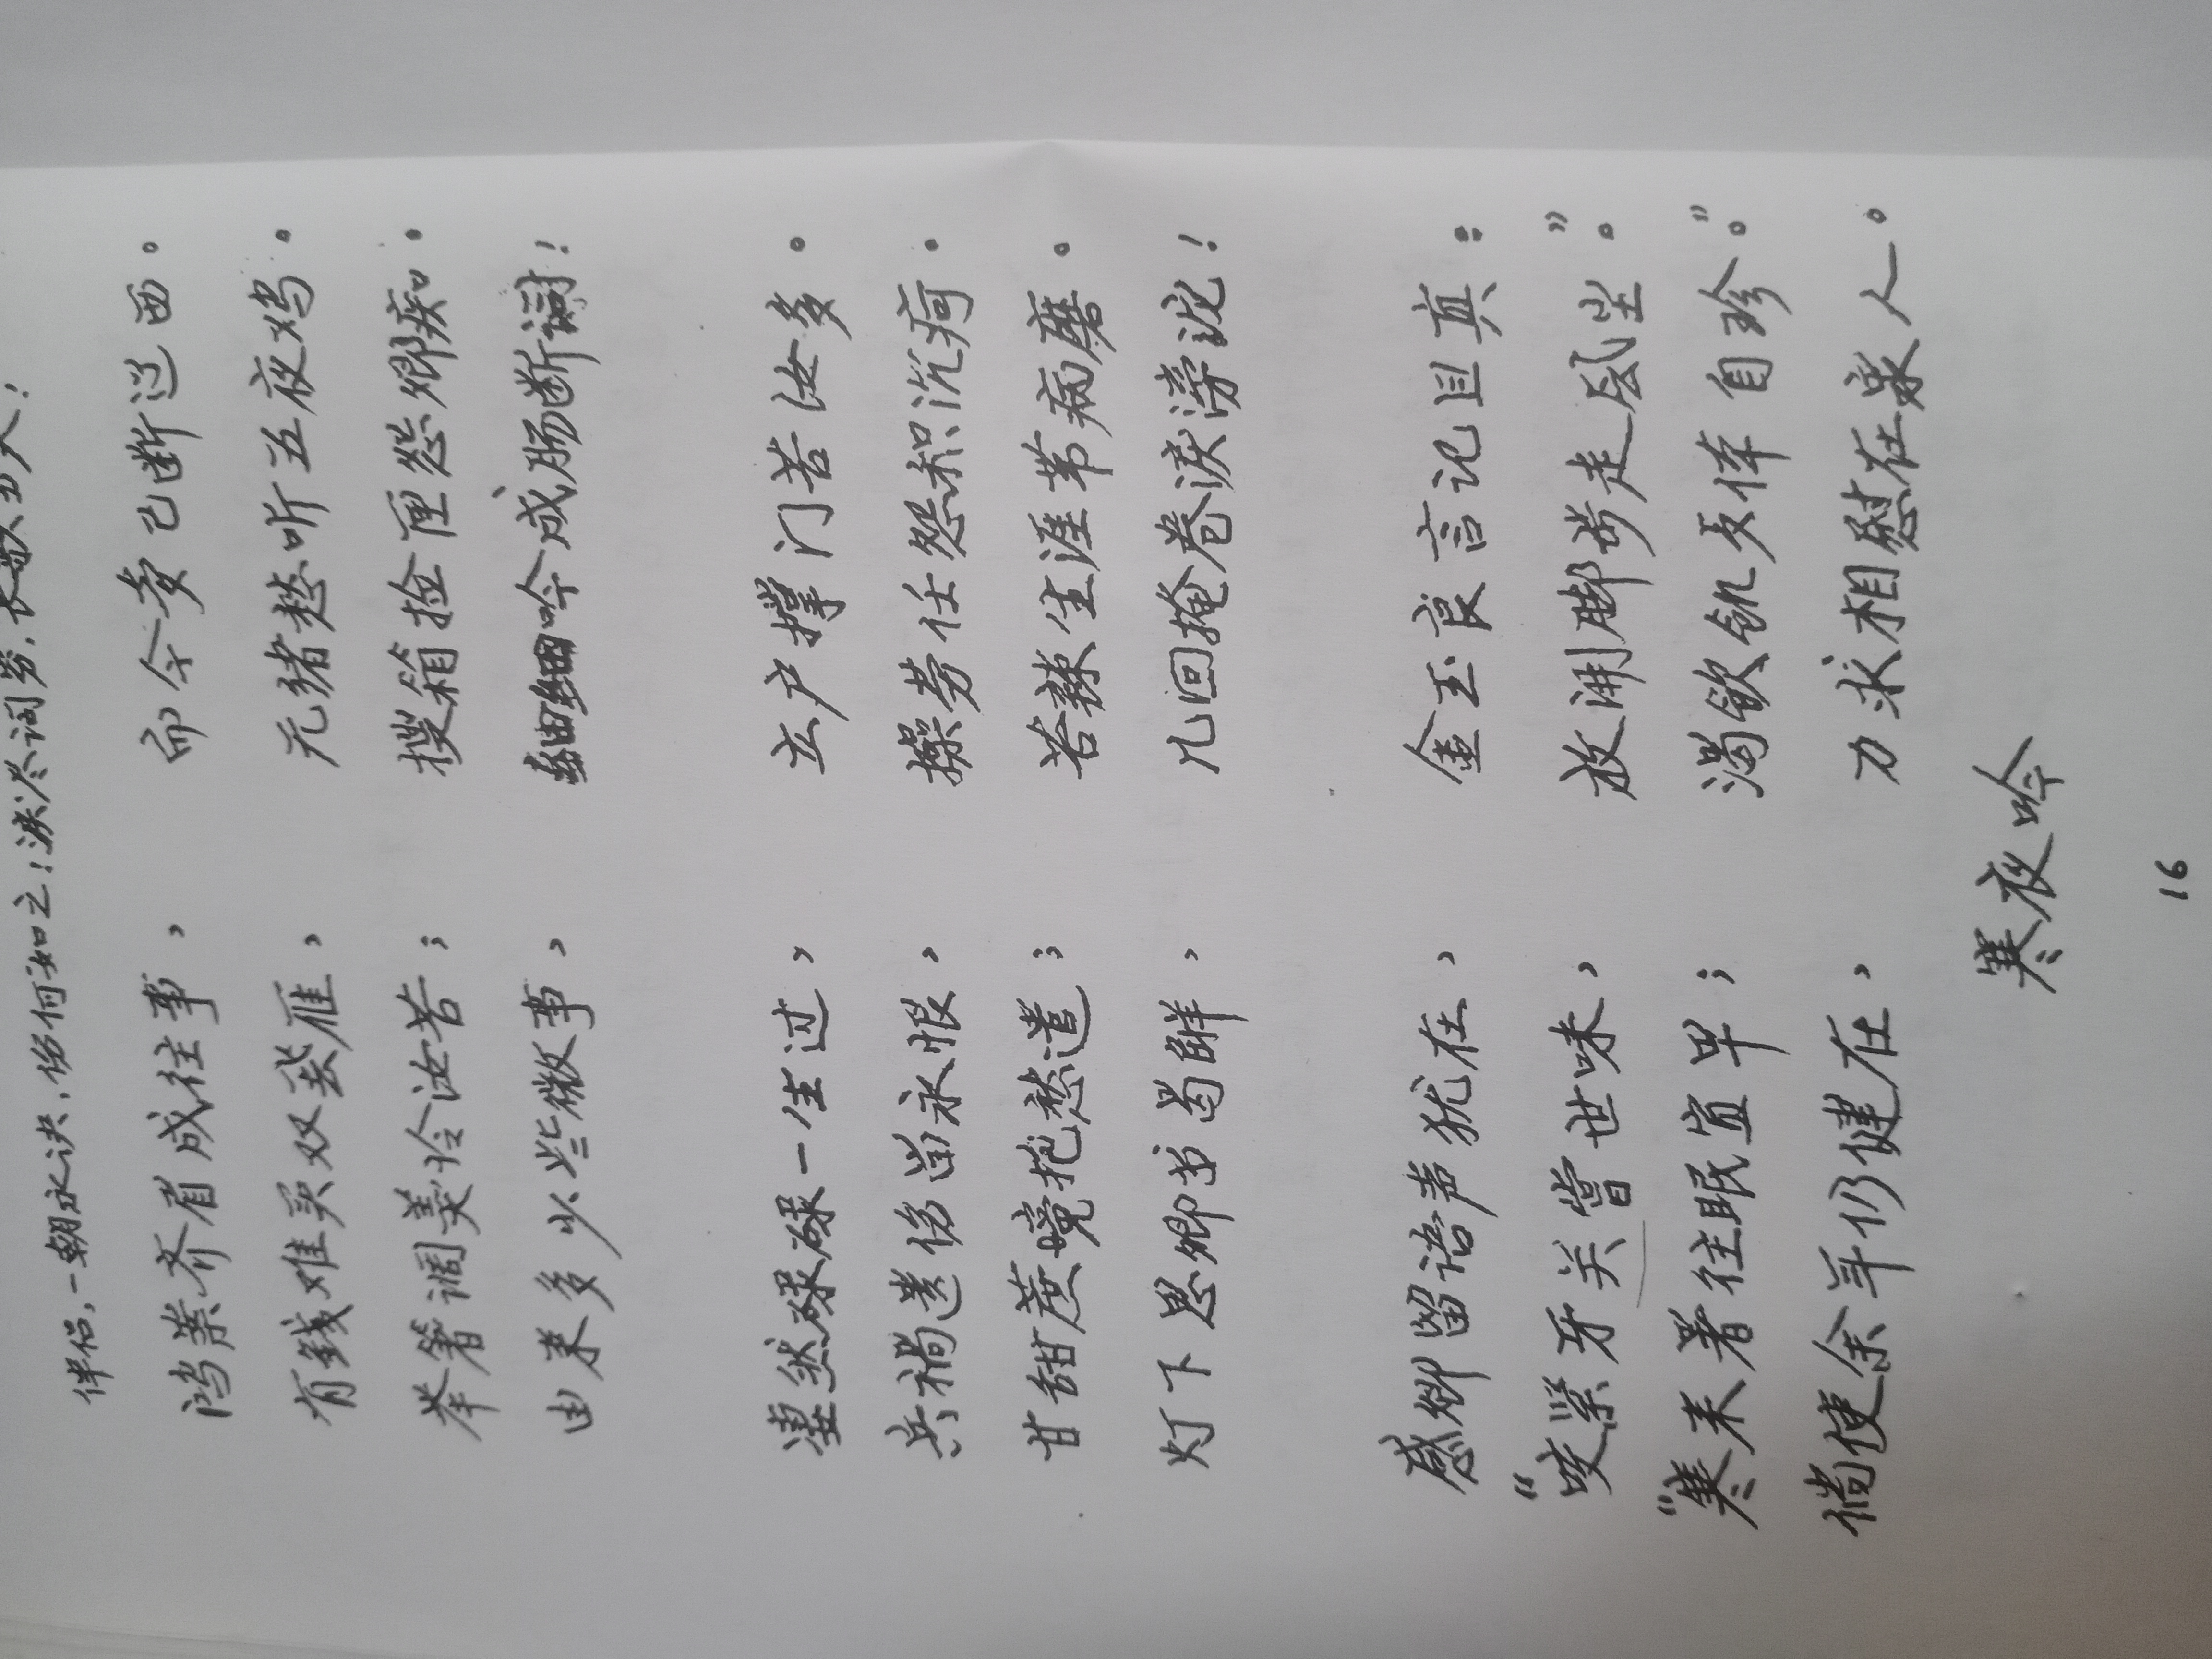 伴侣,一朝永诀,伤何如之!淚尽词穷,长歌当哭!
鸿案齐眉成往事, 而今已断辽西。
有錢难买双雁, 无绪愁听五夜鸡。
举箸调羹怜汝苦; 搜箱捡匣怨卿痴。
由来多少些微事, 细细吟成肠断词!
凄然碌碌一生过, 立户撑门苦汝多。
兵祸遗伤留永恨, 操劳任怨积沉疴。
甘甜蔗境把愁遣; 苦辣生涯带病磨。
灯下思卿书, 几回掩卷淚滂沱!
感卿留语声犹在, 金玉良言记且真:
“咬紧牙关尝世味, 放开脚步走风尘”。
“寒来暑往眠宜早; 渴飲飢衣体自珍”。
倘使余年仍健在, 力求相慰在家人。
寒夜吟
16